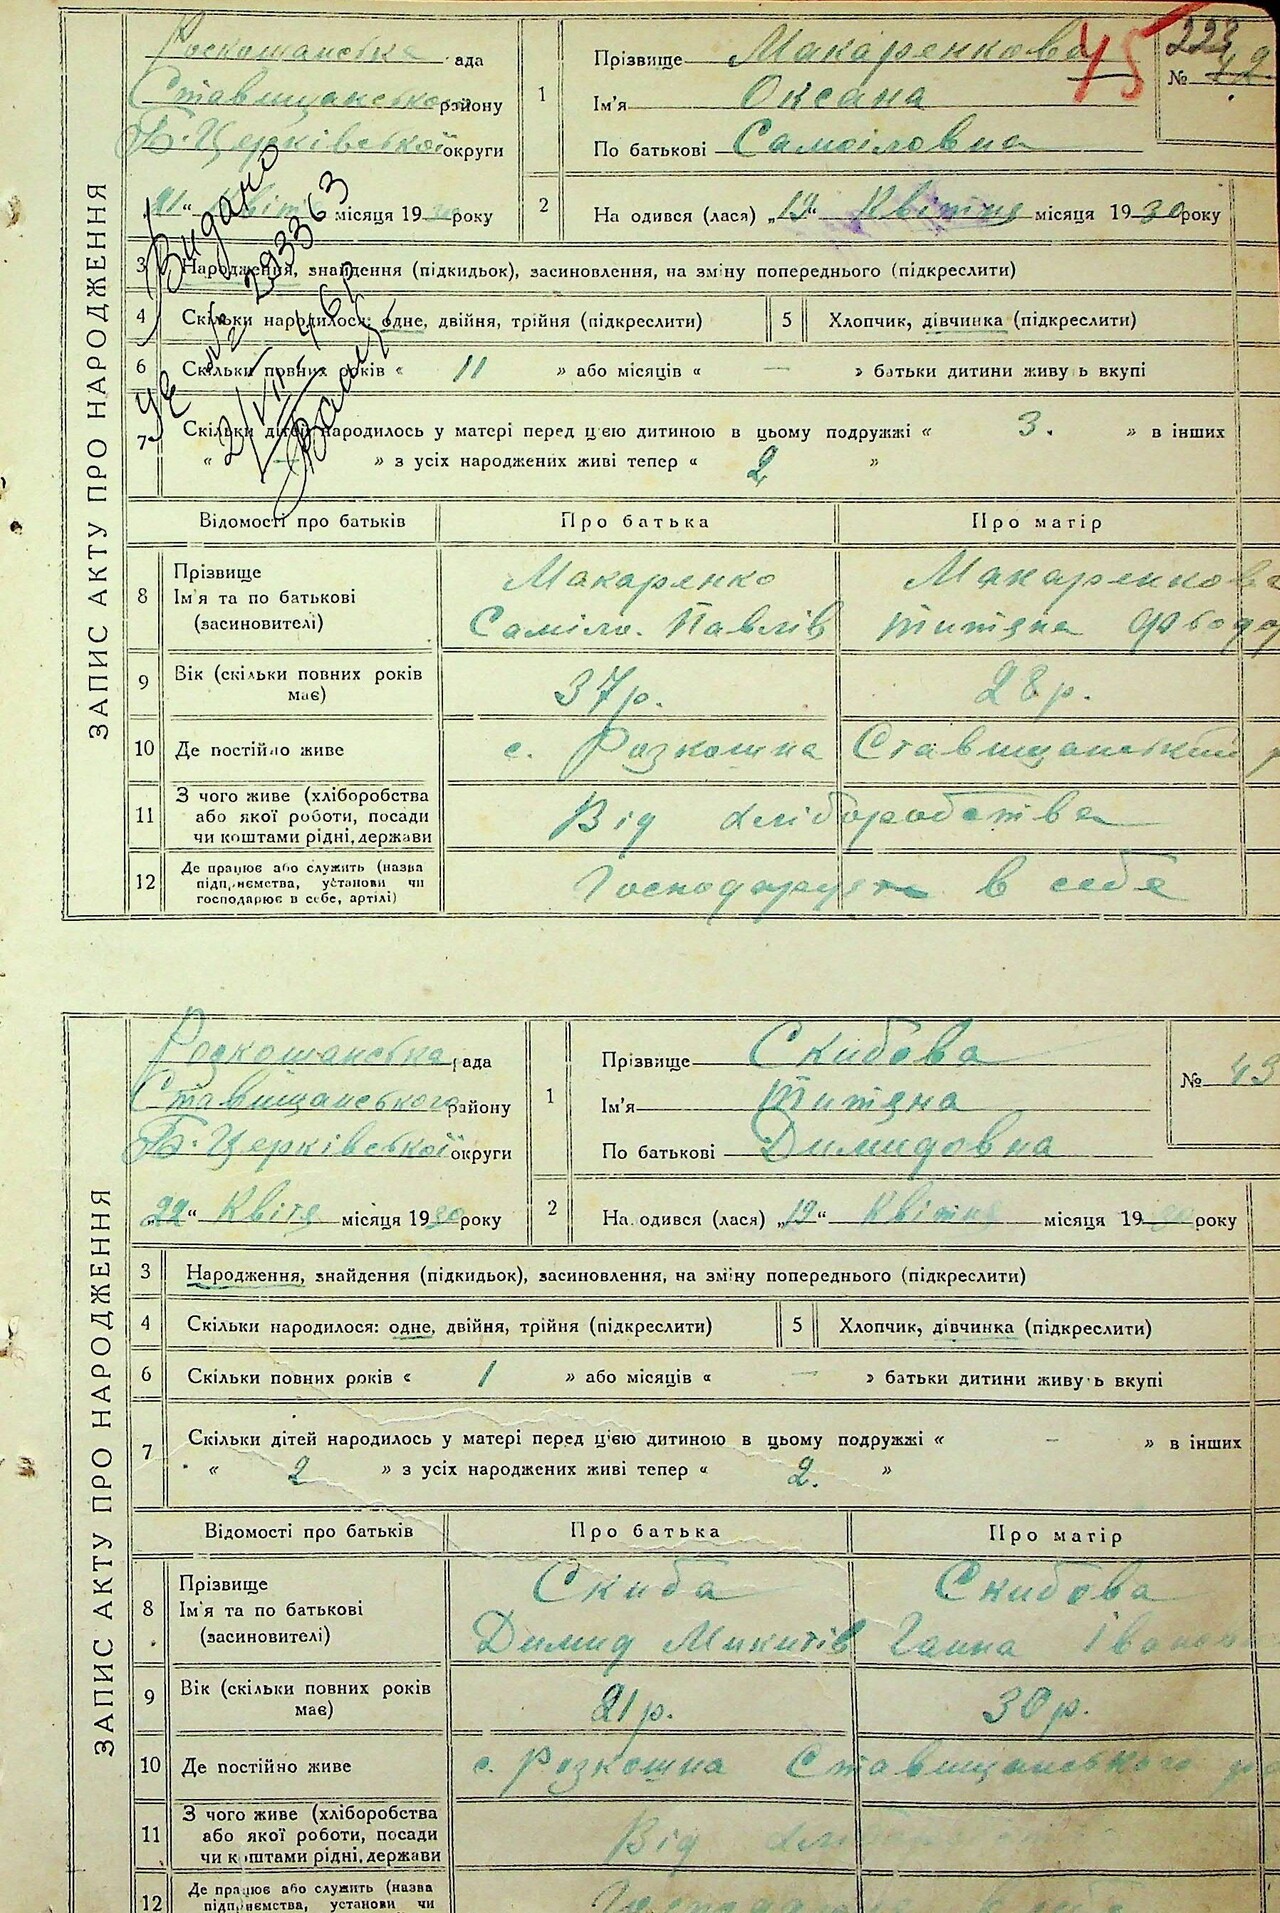 ЗАПИС АКТУ ПРО НАРОДЖЕННЯ
Роскошанська рада
Ставищанського району
Б. Церківської округи
21 " Квіт місяця 1930 року
1
Прізвище Макаренкова
Ім'я Оксана
По батькові Самоіловна
45
223
№ 42
2
На одився (лася) „19" Квітня місяця 1930 року
Видано
№ 293363
2/VII 46р
3 Народження, знайдення (підкидьок), засиновлення, на зміну попереднього (підкреслити)
4 Скільки народилося: одне, двійня, трійня (підкреслити) 5 Хлопчик, дівчинка (підкреслити)
6 Скільки повних років « 11 » або місяців « — » батьки дитини живуть вкупі
7 Скільки дітей народилось у матері перед цією дитиною в цьому подружжі « 3. » в інших
« — » з усіх народжених живі тепер « 2 »
Відомості про батьків Про батька Про матір
8 Прізвище Ім'я та по батькові (засиновителі)
Макаренко Макаренкова
Саміло. Павлів Титяна Ф
9 Вік (скільки повних років має) 37р. 28р.
10 Де постійно живе с. Розкошна Ставищанський р
11 З чого живе (хліборобства або якої роботи, посади чи коштами рідні, держави Від хліборобства
12 Де працює або служить (назва підприємства, установи чи господарює в себе, артілі) Господарують в себе
ЗАПИС АКТУ ПРО НАРОДЖЕННЯ
Роскошанська рада
Ставищанського району
Б. Церківської округи
„22" Квітя місяця 1930 року
1
Прізвище Скибова
Ім'я Титяна
По батькові Димидовна
№ 43
2
На одився (лася) „19" Квітня місяця 1930 року
3 Народження, знайдення (підкидьок), засиновлення, на зміну попереднього (підкреслити)
4 Скільки народилося: одне, двійня, трійня (підкреслити) 5 Хлопчик, дівчинка (підкреслити)
6 Скільки повних років « 1 » або місяців « — » батьки дитини живуть вкупі
7 Скільки дітей народилось у матері перед цією дитиною в цьому подружжі « — » в інших
« 2 » з усіх народжених живі тепер « 2. »
Відомості про батьків Про батька Про матір
8 Прізвище Ім'я та по батькові (засиновителі)
Скиба Скибова
Димид Микитів Ганна Іванов
9 Вік (скільки повних років має) 21р. 30р.
10 Де постійно живе с. Розкошна Ставищанського р
11 З чого живе (хліборобства або якої роботи, посади чи коштами рідні, держави Від
12 Де працює або служить (назва
підприємства, установи чи